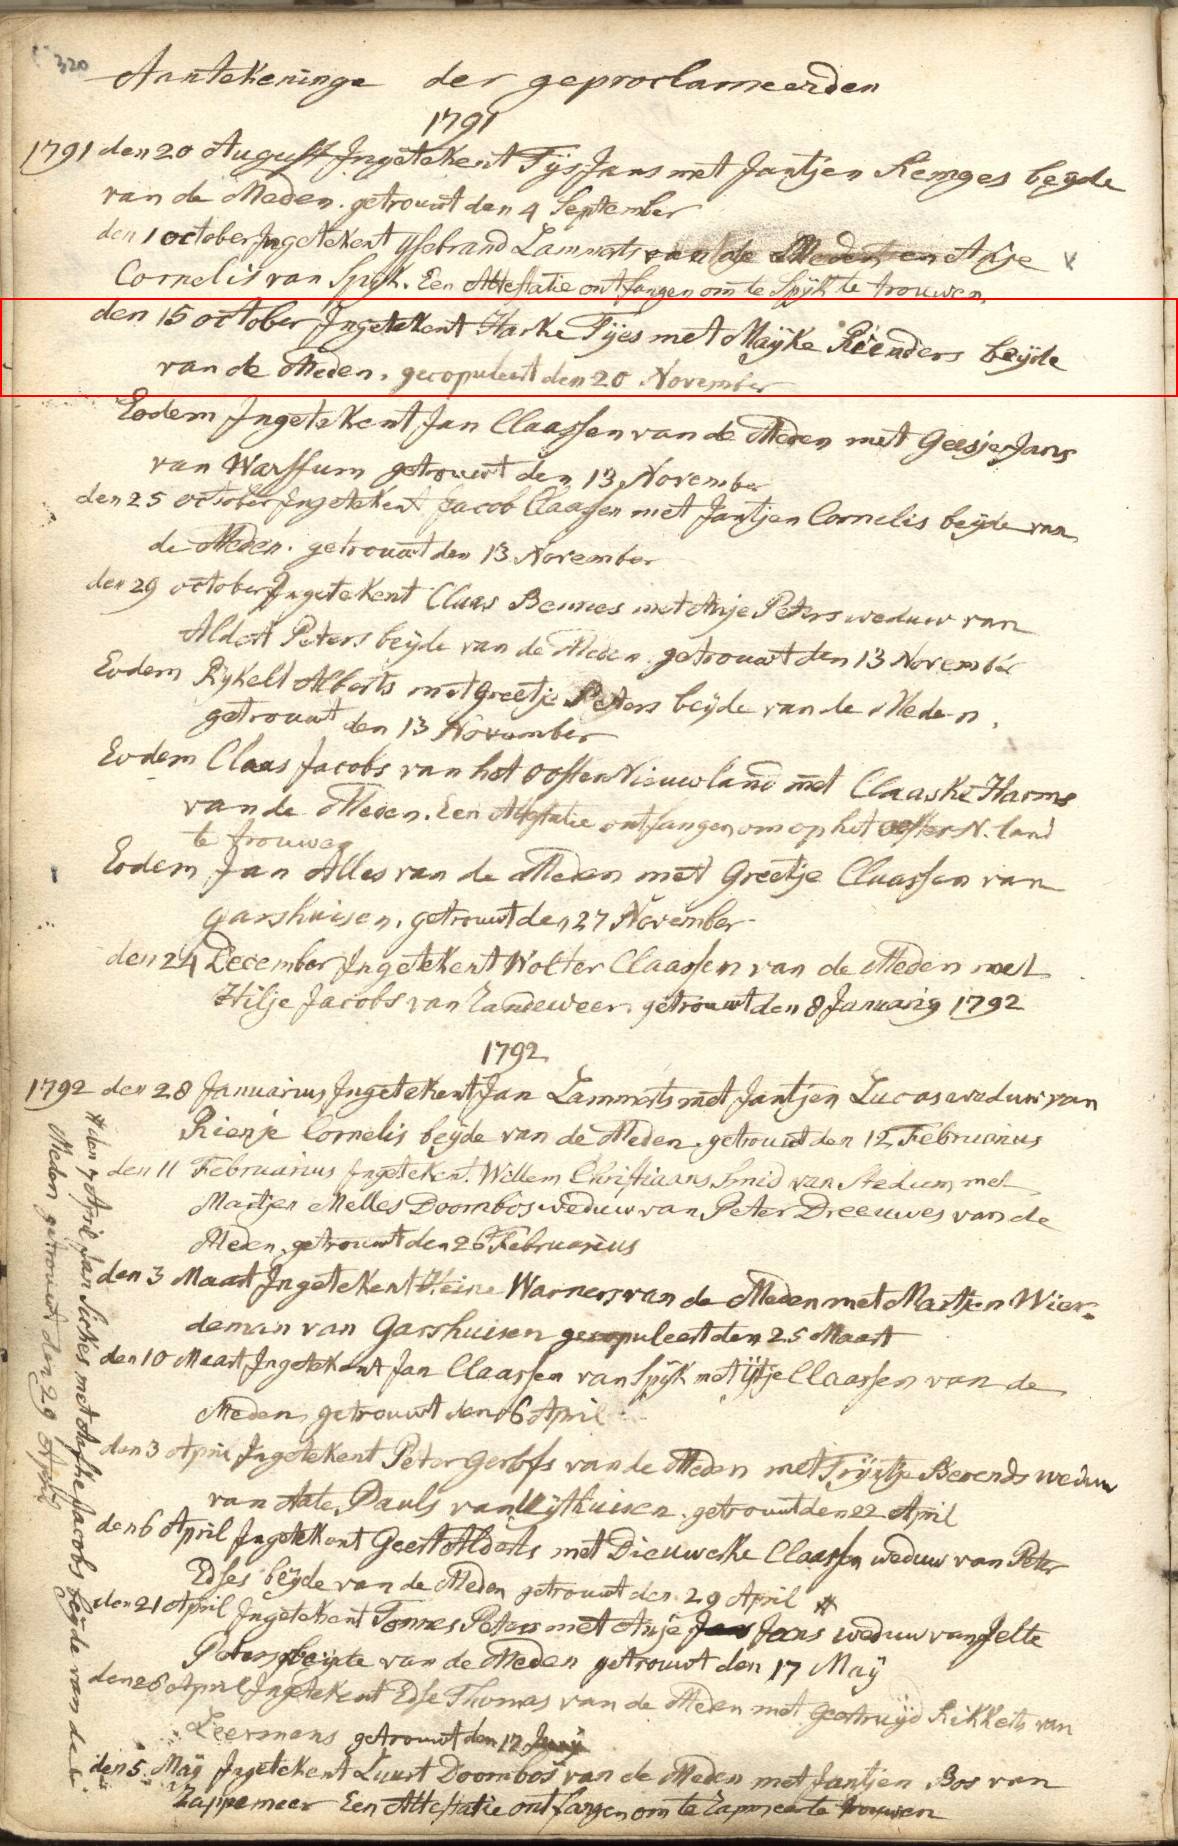 320
Aantekeninge der geproclameerden
1791
1791 den 20 August Ingetekent Tijs Jans met Jantjen Remges beyde
van de Meden. getrouwt den 4 September
den 1 october Ingetekent Ysebrand Lammerts van de Meden en Anje
Cornelis van Spijk. Een Attestatie ontfangen om te Spijk te trouwen.
den 15 october Ingetekent Harke Tijes met Maijke Rienders beijde
van de Meden. gecopuleert den 20 November
Eodem Ingetekent Jan Claassen van de Meden met Geesje Jans
van Warffum getrouwt den 13 November
den 25 october Ingetekent Jacob Claassen met Jantjen Cornelis beijde van
de Meden. getrouwt den 13 November
den 29 october Ingetekent Claas Bennes met Anje Peters weduw van
Aldert Peters beijde van de Meden. getrouwt den 13 November
Eodem Rijkelt Alberts met Greetje Peters beijde van de Meden.
getrouwt den 13 November
Eodem Claas Jacobs van het Oosten Nieuwland met Claaske Harms
van de Meden. Een Attestatie ontfangen om op het Ooster N. land
te trouwen
Eodem Jan Alles van de Meden met Greetje Claassen van
Garshuisen. getrouwt den 27 November
den 24 December Ingetekent Wolter Claassen van de Meden met
Hilje Jacobs van Zandeweer. getrouwt den 8 Januarij 1792
1792
1792 den 28 Januarius Ingetekent Jan Lammerts met Jantjen Lucas weduw van
Rienje Cornelis beijde van de Meden. getrouwt den 12 Februarius
den 11 Februarius Ingetekent Willem Christiaans Smid van Stedum met
Martjen Melles Doornbos weduw van Peter Dreeuwes van de
Meden. getrouwt den 26 Februarius
den 3 Maart Ingetekent Heine Warners van de Meden met Martjen Wier-
deman van Garshuisen gecopuleert den 25 Maart
den 10 Maart Ingetekent Jan Claassen van Spijk met Claassen van de
Meden, getrouwt den 6 April
den 3 April Ingetekent Peter van de Meden met Trijntje Berends weduw
van Pauls van Uijthuisen. getrouwt den 22 April
den 6 April Ingetekent Geert Alderts met Dieuwerke Claassen weduw van Peter
Edses beijde van de Meden getrouwt den 29 April #
den 21 April Ingetekent Tonnes Peters met Anje Jans weduw van Jelte
Peters beijde van de Meden getrouwt den 17 Maij
den 28 April Ingetekent Edse Thomas van de Meden met Geertruijd Rikkerts van
Leermens getrouwt den 12
den 5 Maij Ingetekent Luurt Doornbos van de Meden met Jantjen Bos van
Zappemeer Een Attestatie ontfangen om te Zapmeer te trouwen
# den 7 April Jan Sickes met Jacobs beijde van de
Meden getrouwt den 29 April